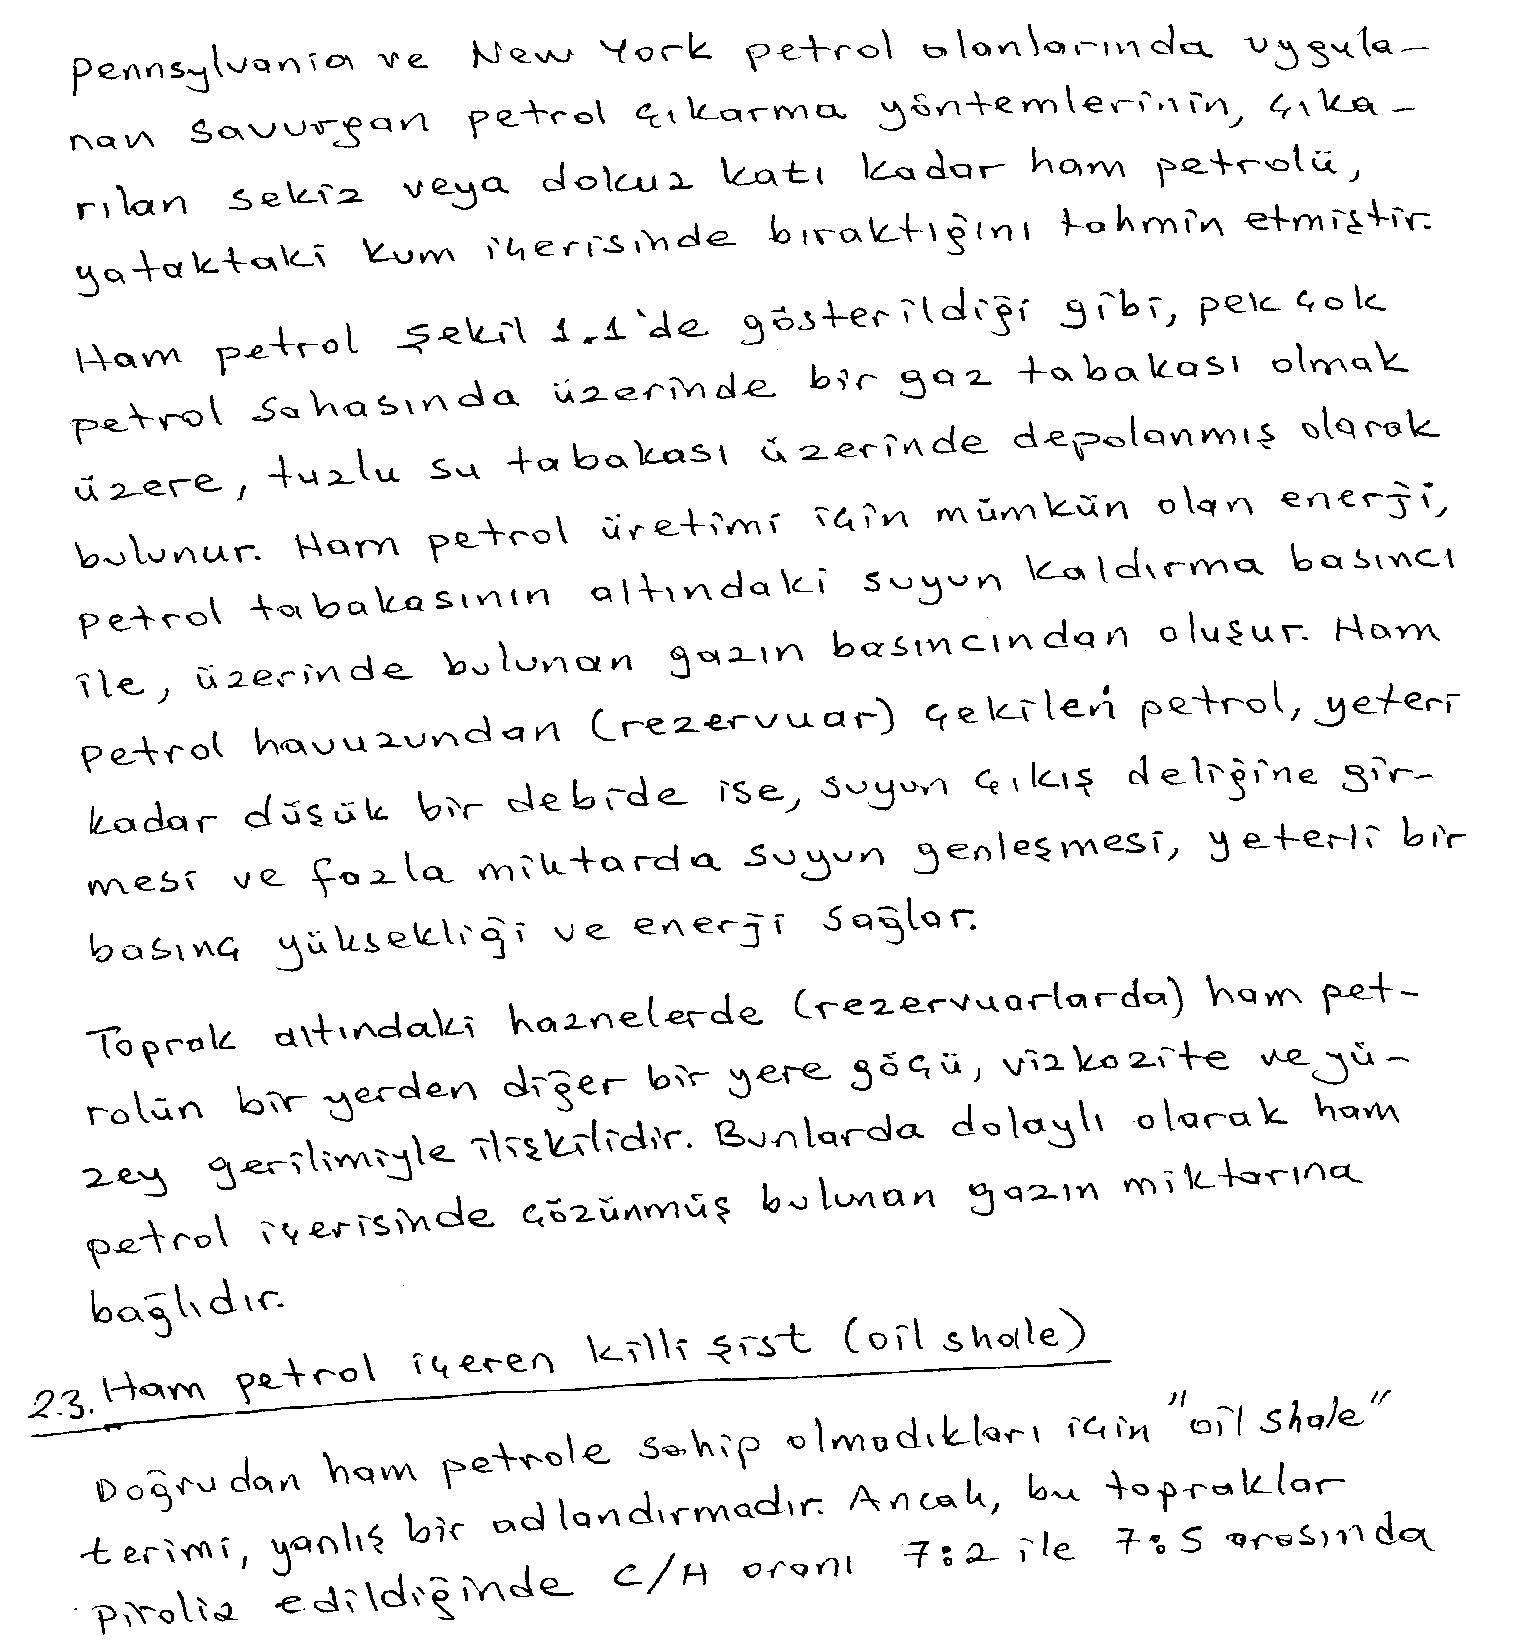 Pennsylvania ve New York petrol alanlarında uygula-
nan savurgan petrol çıkarma yöntemlerinin, çıka-
rılan sekiz veya dokuz katı kadar ham petrolü,
yataktaki kum içerisinde bıraktığını tahmin etmiştir.
Ham petrol şekil 1.1'de gösterildiği gibi, pek çok
petrol sahasında üzerinde bir gaz tabakası olmak
üzere, tuzlu su tabakası üzerinde depolanmış olarak
bulunur. Ham petrol üretimi için mümkün olan enerji,
petrol tabakasının altındaki suyun kaldırma basıncı
ile, üzerinde bulunan gazın basıncından oluşur. Ham
petrol havuzundan (rezervuar) çekilen petrol, yeteri
kadar düşük bir debide ise, suyun çıkış deliğine gir-
mesi ve fazla miktarda suyun genleşmesi, yeterli bir
basınç yüksekliği ve enerji sağlar.
Toprak altındaki haznelerde (rezervuarlarda) ham pet-
rolün bir yerden diğer bir yere göçü, vizkozite ve yü-
zey gerilimiyle ilişkilidir. Bunlarda dolaylı olarak ham
petrol içerisinde çözünmüş bulunan gazın miktarına
bağlıdır.
2.3. Ham petrol içeren killi şist (oil shale)
Doğrudan ham petrole sahip olmadıkları için "oil shale"
terimi, yanlış bir adlandırmadır. Ancak, bu topraklar
piroliz edildiğinde C/H oranı 7:2 ile 7:5 arasında